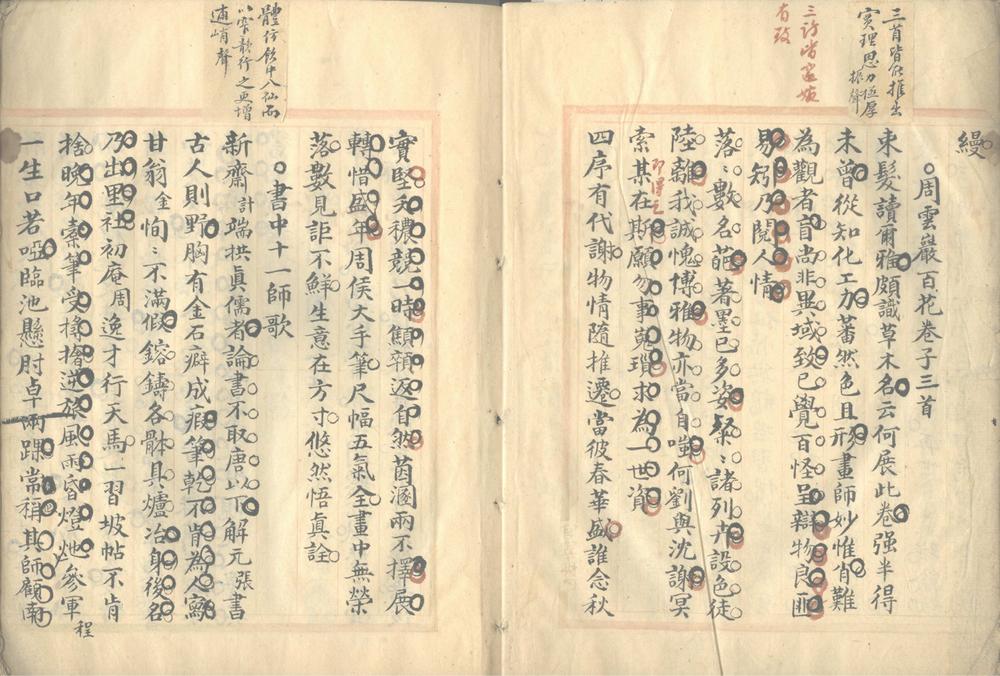 三首皆能推出
實理思力極厚
振聲
三詩皆遒妙
有致
縵
○周雲巖百花卷子三首
束髮讀爾雅頗識草木名云何展此卷强半得
未曾從知化工力蕃然色且形畫師妙惟肖難
為觀者盲尚非異域致已覺百怪呈辯物良匪
易矧乃閱人情
落〻數名葩著墨已多姿粲〻諸列卉設色徒
陸離我誠愧博雅物亦當自嗤何劉與沈謝冥
索某在斯願勿事嵬瑣求為一世資
四序有代謝物情隨推遷當彼春華盛誰念秋
實堅夭穠競一時顛蘀返自然茵溷兩不擇展
轉惜盛年周侯大手筆尺幅五氣全畫中無榮
落數見詎不鮮生意在方寸悠然悟真詮
體仿飲中八仙而
以窄韻行之更增
逋峭聲
○書中十一師歌
新齋計端拱真儒者論書不取唐以下解元張書
古人則野胸有金石癖成瘕筆乾不肯為人寫
甘翁金恂〻不滿假鎔鑄各體具爐冶身後名
乃出里社初庵周逸才行天馬一習坡帖不肯
捨晚年橐筆受撝𢶍逆旅風雨昏燈灺參軍
程
一生口若啞臨池懸肘卓兩踝常稱其師顧南